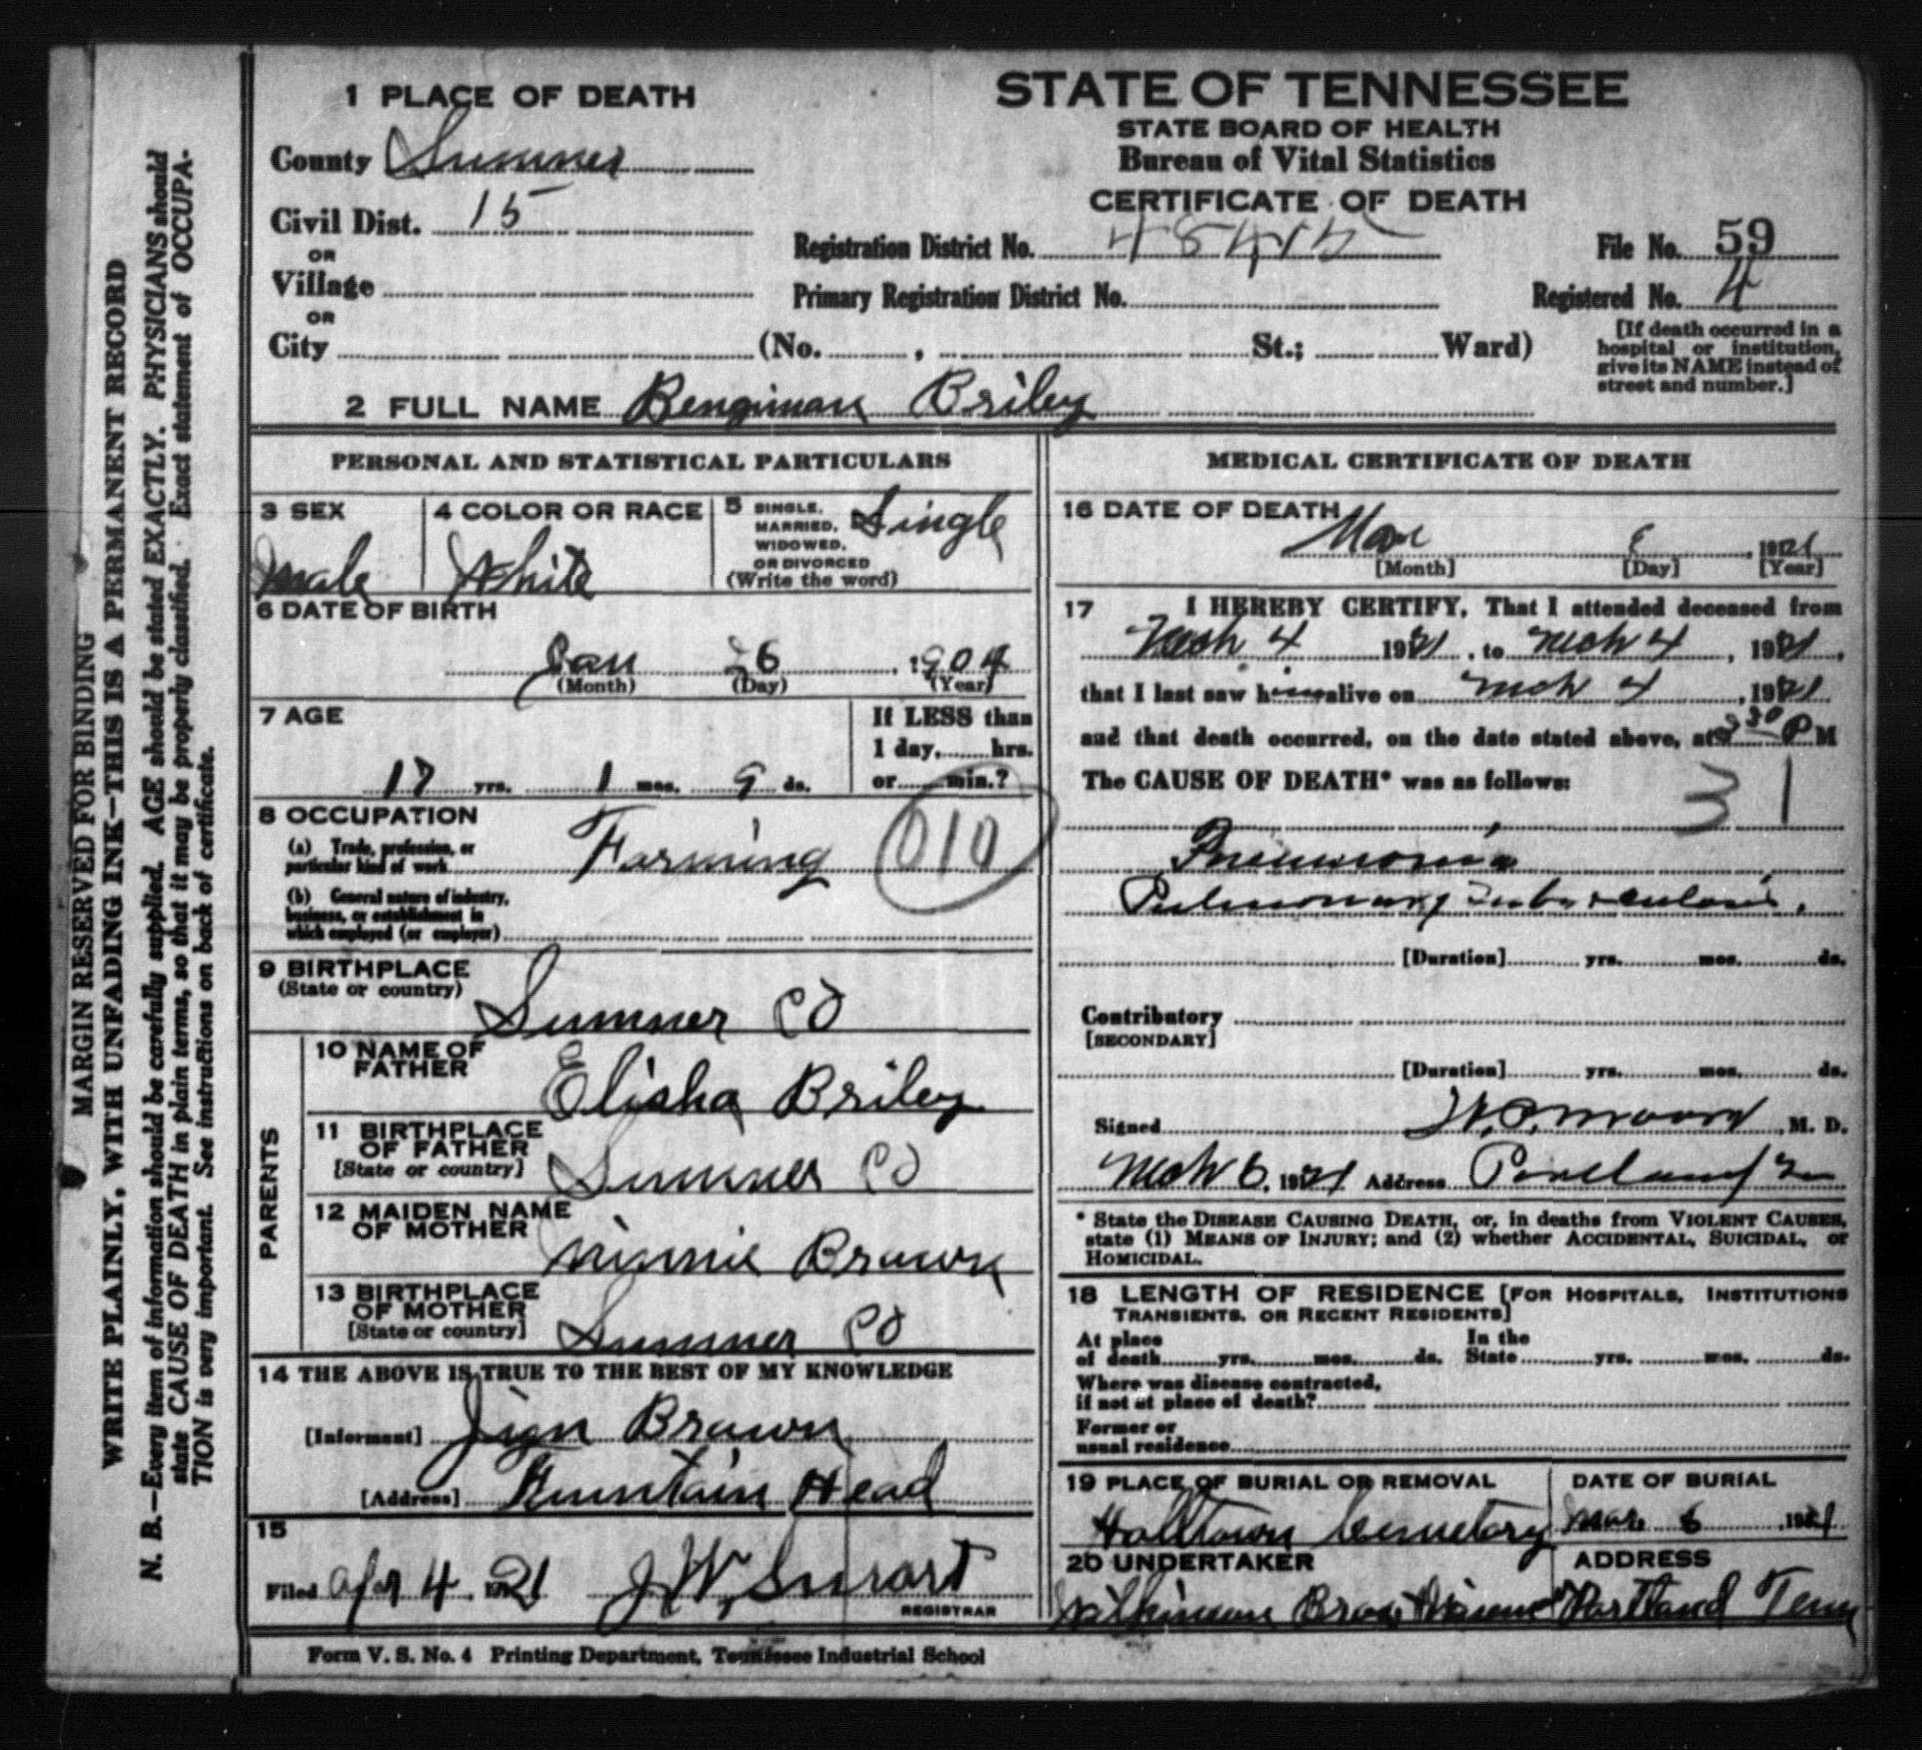 MARGIN RESERVED FOR BINDING
WRITE PLAINLY, WITH UNFADING INK—THIS IS A PERMANENT RECORD
N. B.—Every item of information should be carefully supplied. AGE should be stated EXACTLY. PHYSICIANS should
state CAUSE OF DEATH in plain terms, so that it may be properly classified. Exact statement of OCCUPA-
TION is very important. See instructions on back of certificate.
1 PLACE OF DEATH
County Sumner
Civil Dist. 15
OR
Village
OR
City (No. , St.; Ward)
STATE OF TENNESSEE
STATE BOARD OF HEALTH
Bureau of Vital Statistics
CERTIFICATE OF DEATH
Registration District No.
File No. 59
Primary Registration District No.
Registered No. 4
[If death occurred in a
hospital or institution,
give its NAME instead of
street and number.]
2 FULL NAME Bengiman Briley
PERSONAL AND STATISTICAL PARTICULARS
3 SEX
Male
4 COLOR OR RACE
White
5 SINGLE,
MARRIED,
WIDOWED,
OR DIVORCED
(Write the word)
Single
6 DATE OF BIRTH
Jan 26, 1904
(Month) (Day) (Year)
7 AGE
17 yrs. 1 mos. 9 ds.
If LESS than
1 day, hrs.
or min.?
8 OCCUPATION
(a) Trade, profession, or
particular kind of work Farming
010
(b) General nature of industry,
business, or establishment in
which employed (or employer)
9 BIRTHPLACE
(State or country)
Sumner CO
PARENTS
10 NAME OF
FATHER
Elisha Briley
11 BIRTHPLACE
OF FATHER
[State or country]
Sumner CO
12 MAIDEN NAME
OF MOTHER
Minnie Brown
13 BIRTHPLACE
OF MOTHER
[State or country]
Sumner CO
14 THE ABOVE IS TRUE TO THE BEST OF MY KNOWLEDGE
[Informant] Brown
[Address] Fountain Head
15
Filed Apr 4, 1921 J W
REGISTRAR
MEDICAL CERTIFICATE OF DEATH
16 DATE OF DEATH
Mar , 1921
[Month] [Day] [Year]
17 I HEREBY CERTIFY, That I attended deceased from
Mch 4 1921, to Mch 4, 1921,
that I last saw him alive on Mch 4, 1921
and that death occurred, on the date stated above, at 30 P M
The CAUSE OF DEATH* was as follows:
31
Pneumonia
Pulmonary Tuberculosis.
[Duration] yrs. mos. ds.
Contributory
[SECONDARY]
[Duration] yrs. mos. ds.
Signed Moore, M. D.
Mch 6, 1921 Address Portland Tn
* State the DISEASE CAUSING DEATH, or, in deaths from VIOLENT CAUSES,
state (1) MEANS OF INJURY; and (2) whether ACCIDENTAL, SUICIDAL, or
HOMICIDAL.
18 LENGTH OF RESIDENCE [FOR HOSPITALS, INSTITUTIONS
TRANSIENTS, OR RECENT RESIDENTS]
At place
of death yrs. mos. ds.
In the
State yrs. mos. ds.
Where was disease contracted,
if not at place of death?
Former or
usual residence
19 PLACE OF BURIAL OR REMOVAL
Halltown Cemetory
DATE OF BURIAL
Mar. 6, 1921
20 UNDERTAKER
Wilkinson Bros
ADDRESS
Portland Tenn
Form V. S. No. 4 Printing Department, Tennessee Industrial School